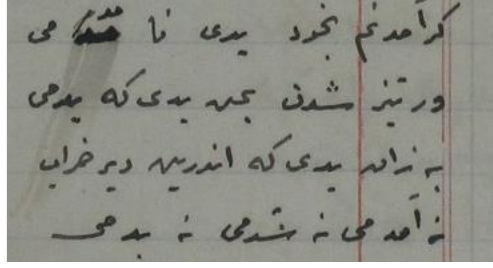 گر آمدنم بخود بدی نا مدمی
ور نیز شدن بمن بدی که بدمی
به زان بدی که اندرین دیر خراب
نه آمدمی نه شدمی نه بدمی